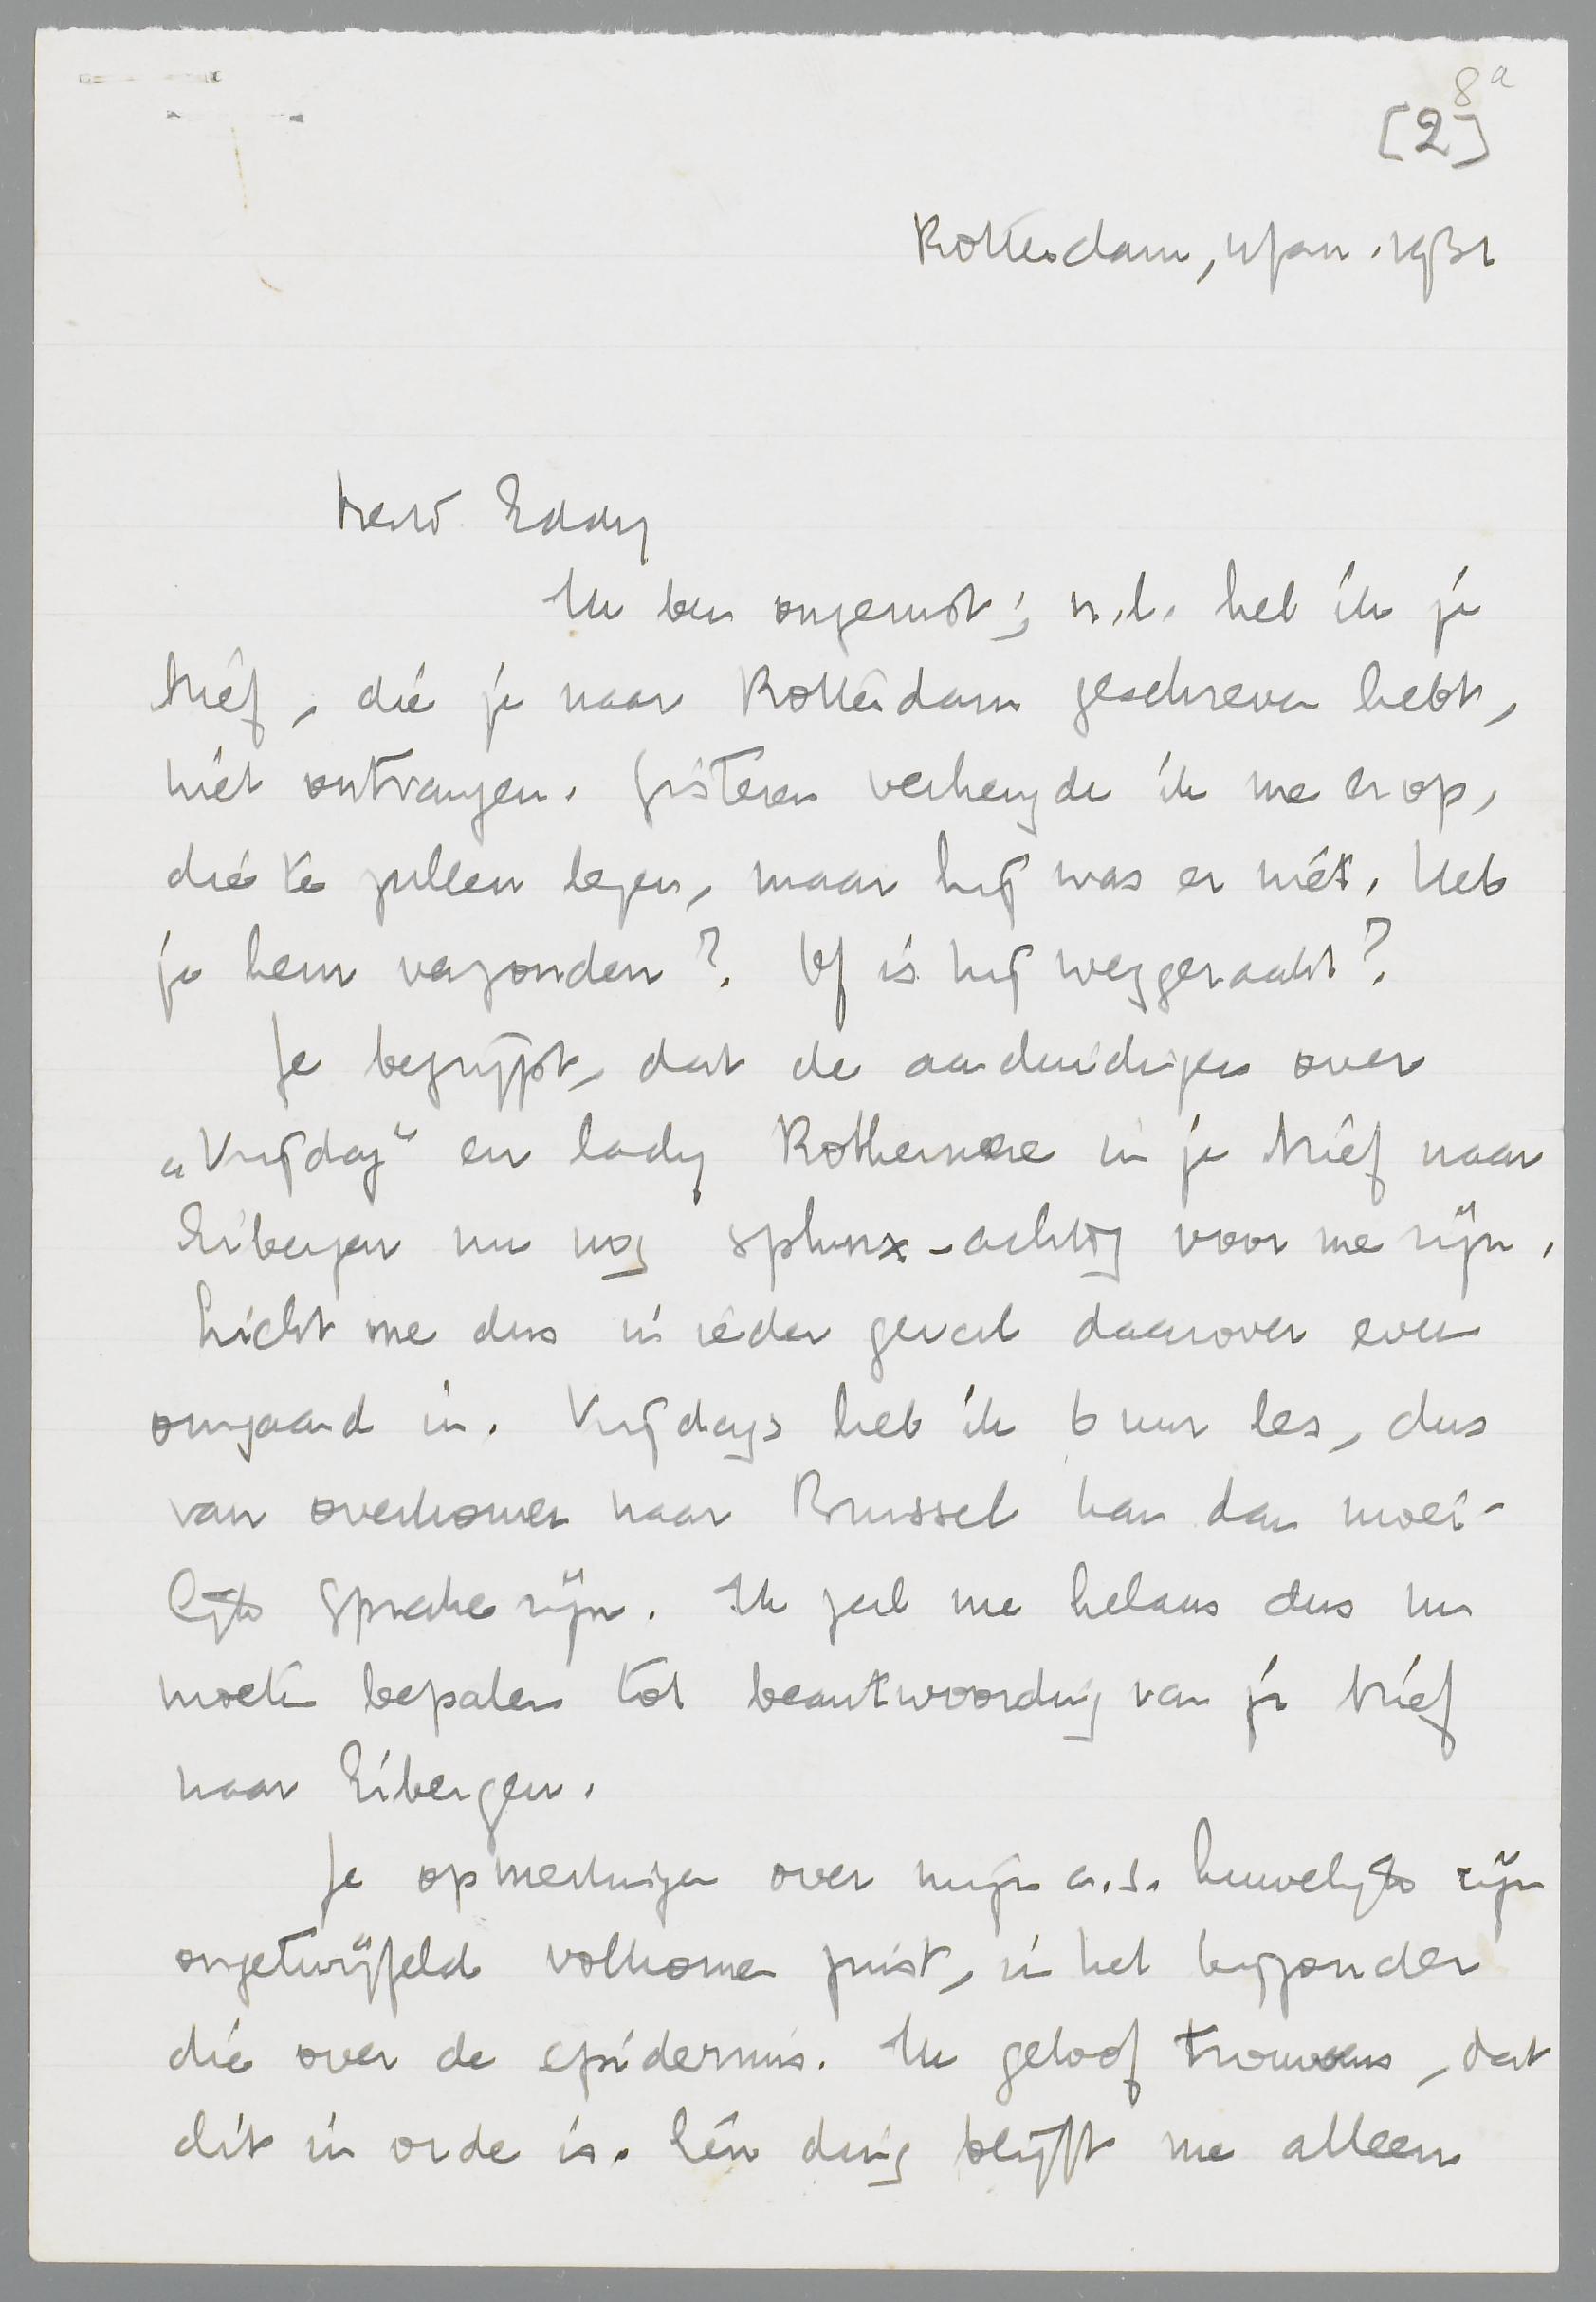 8a
[2]
Rotterdam, 11 Jan. 1931
Beste Eddy
Ik ben ongerust; n.l. heb ik je
brief, die je naar Rotterdam geschreven hebt,
niet ontvangen. Gisteren verheugde ik me erop,
die te zullen lezen, maar hij was er niet. Heb
je hem verzonden? Of is hij weggeraakt?
Je begrijpt, dat de aanduidingen over
„Vrijdag" en lady Rothermere in je brief naar
Eibergen nu nog sphinx-achtig voor me zijn.
Licht me dus in ieder geval daarover even
omgaand in. Vrijdags heb ik 6 uur les, dus
van overkomen naar Brussel kan dan moei-
lijk sprake zijn. Ik zal me helaas dus nu
moeten bepalen tot beantwoording van je brief
naar Eibergen.
Je opmerkingen over mijn a.s. huwelijk zijn
ongetwijfeld volkomen juist, in het bijzonder
die over de epidermis. Ik geloof trouwens, dat
dit in orde is. Eén ding blijft me alleen